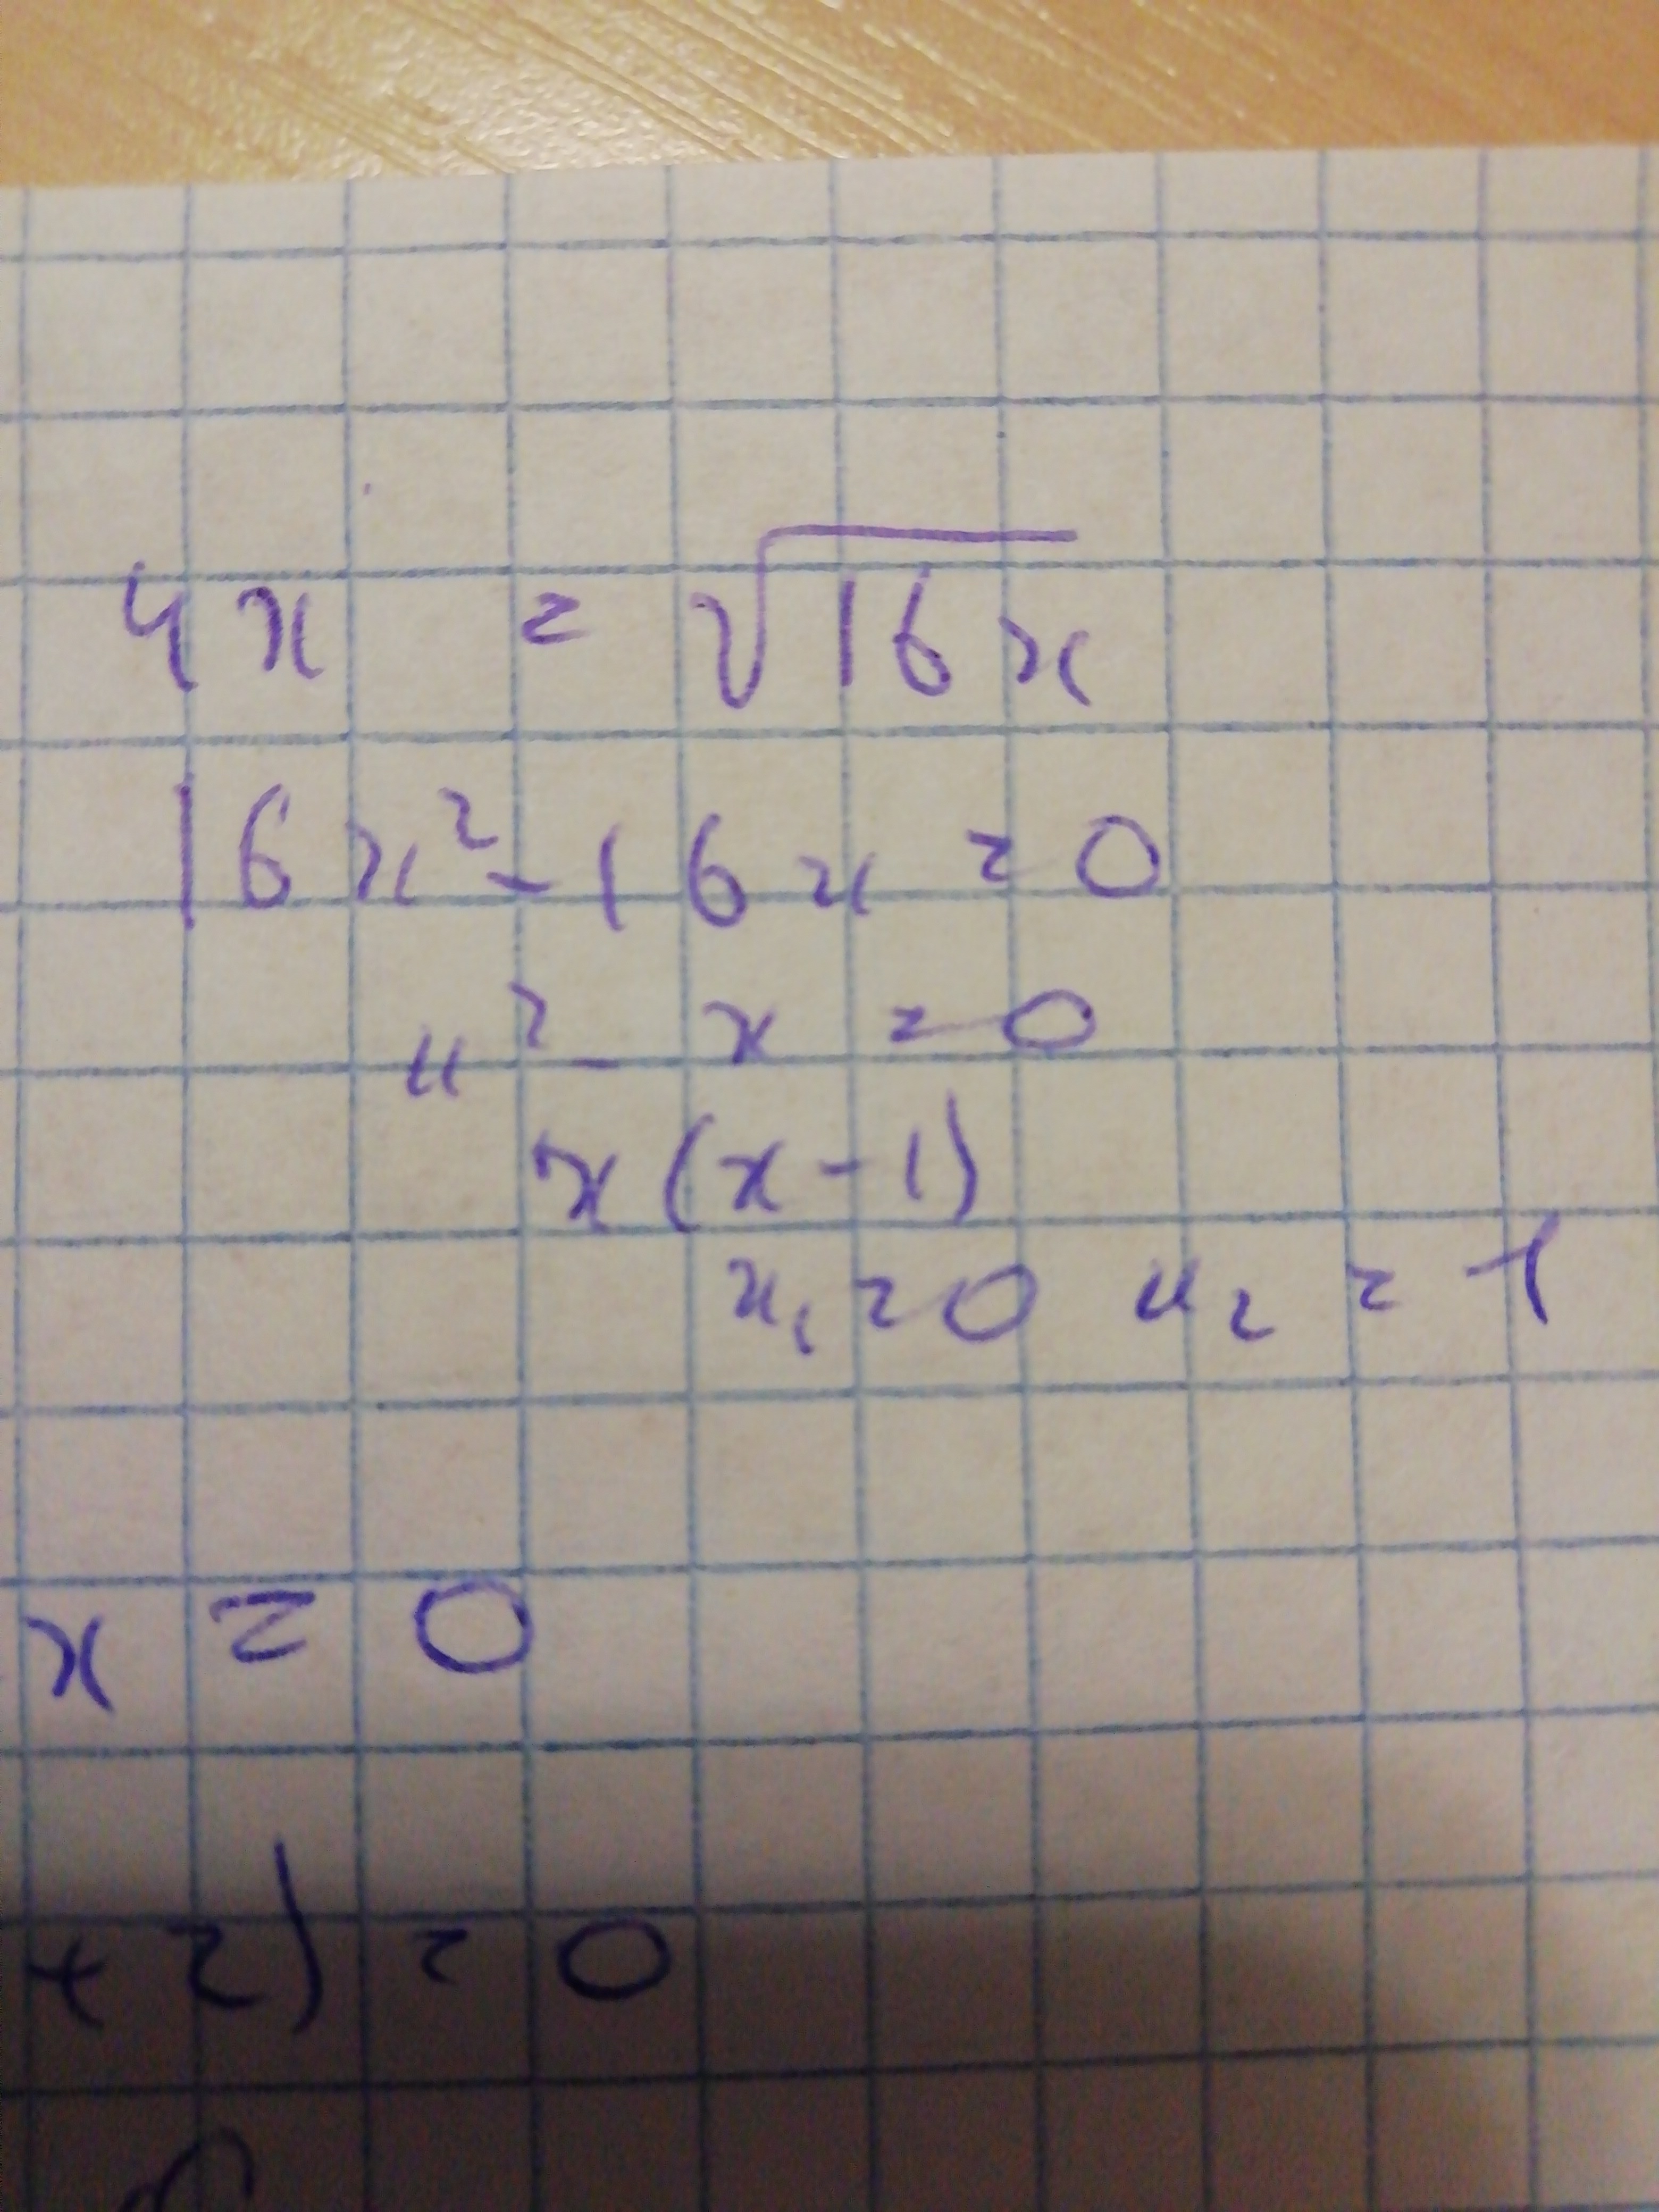 4x = √16x
16x² - 16x = 0
x² - x = 0
x(x - 1)
x₁ = 0 x₂ = 1
x = 0
+ 2) = 0